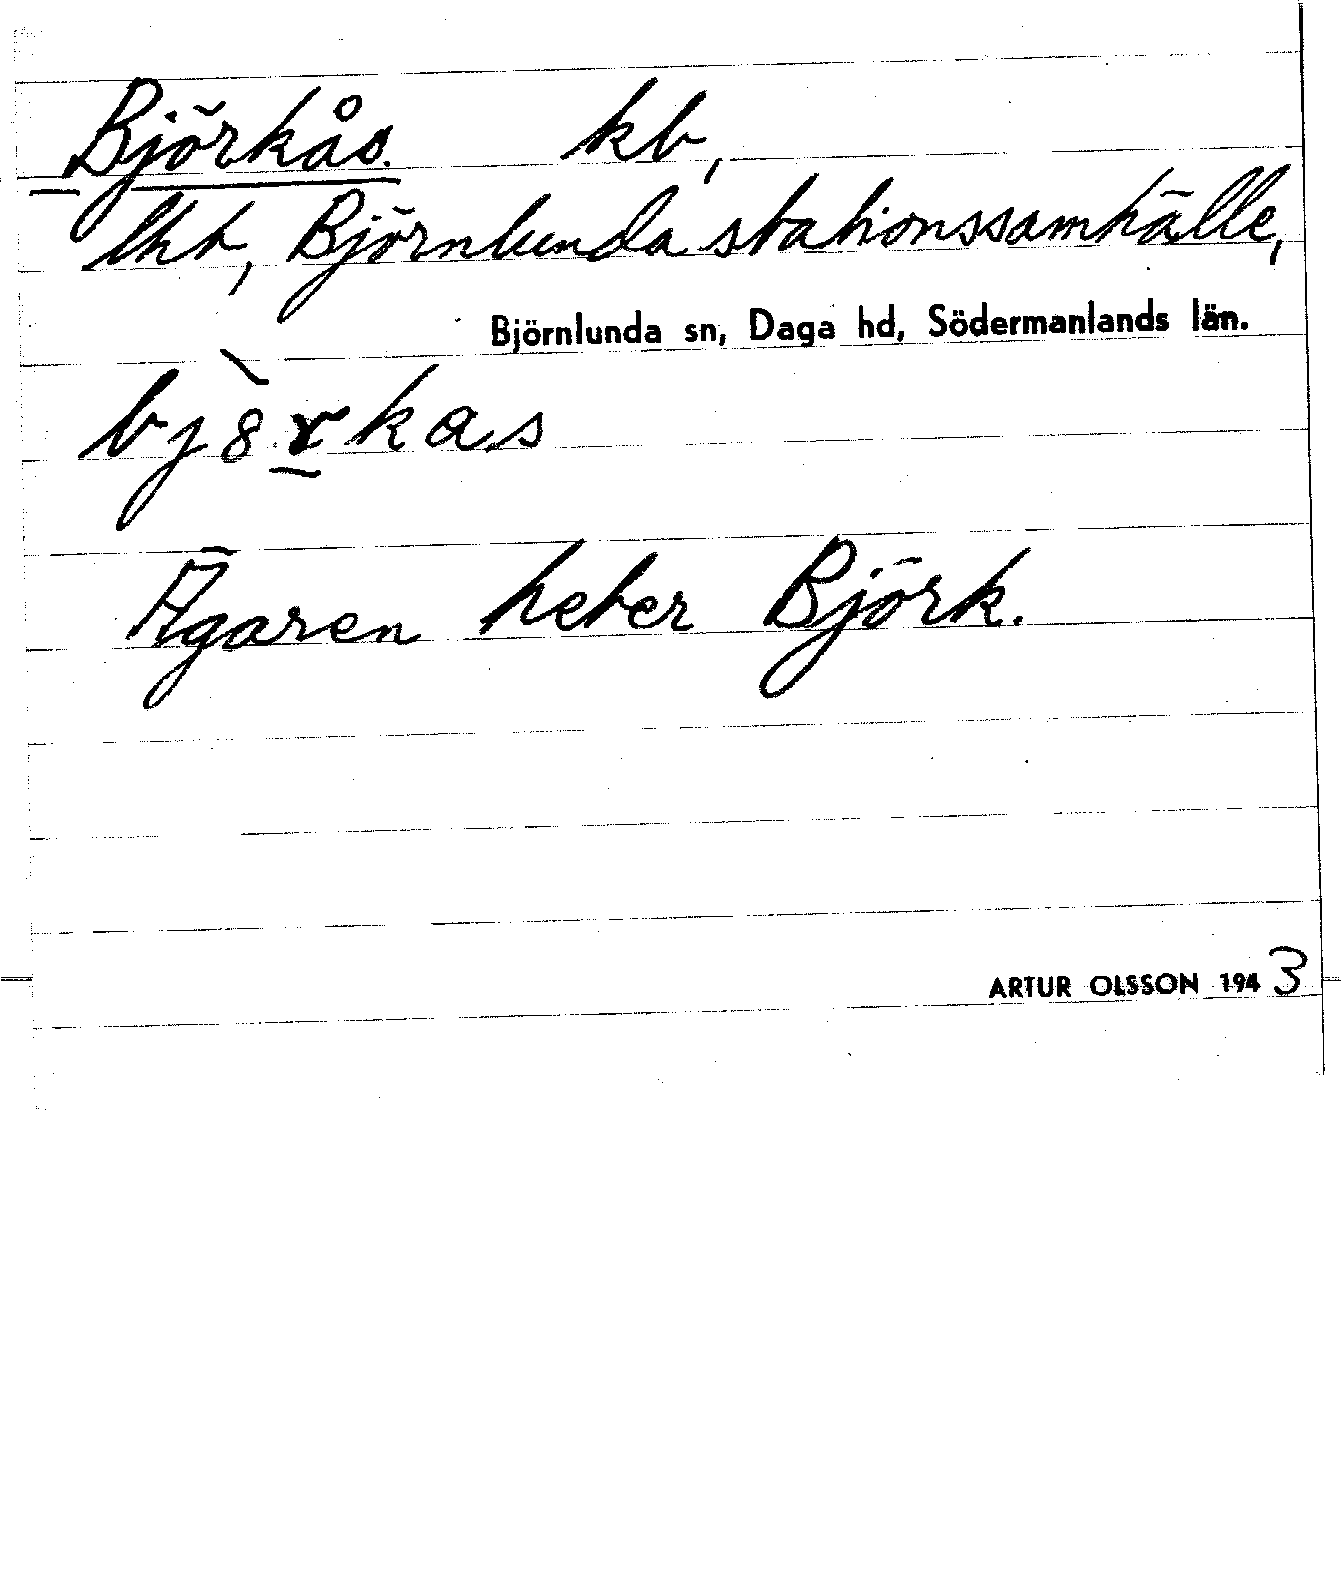 Björkås. kb,
lht, Björnlunda stationssamhälle,
Björnlunda sn, Daga hd, Södermanlands län.
bj 8̀ r̲kas
Ägaren heter Björk.
ARTUR OLSSON 1943